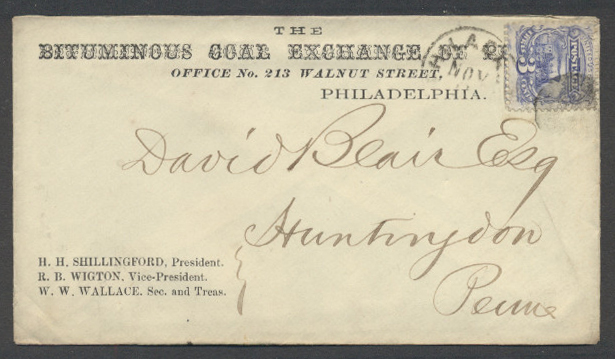 THE
BITUMINOUS COAL EXCHANGE OF
OFFICE No. 213 WALNUT STREET,
PHILADELPHIA.
NOV
David Blair Esq
Huntingdon
Penna
H. H. SHILLINGFORD, President.
R. B. WIGTON, Vice-President.
W. W. WALLACE, Sec. and Treas.